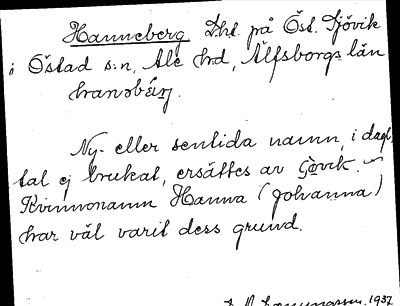 Hanneberg Lht. på Öst. Tjövik
i Östad s:n, Ale hd, Älfsborgs län
hanəbéʒ.
Ny- eller sentida namn, i dagl.
tal ej brukat, ersättes av Govik.
Kvinnonamn Hanna (Johanna)
har väl varit dess grund.
1937